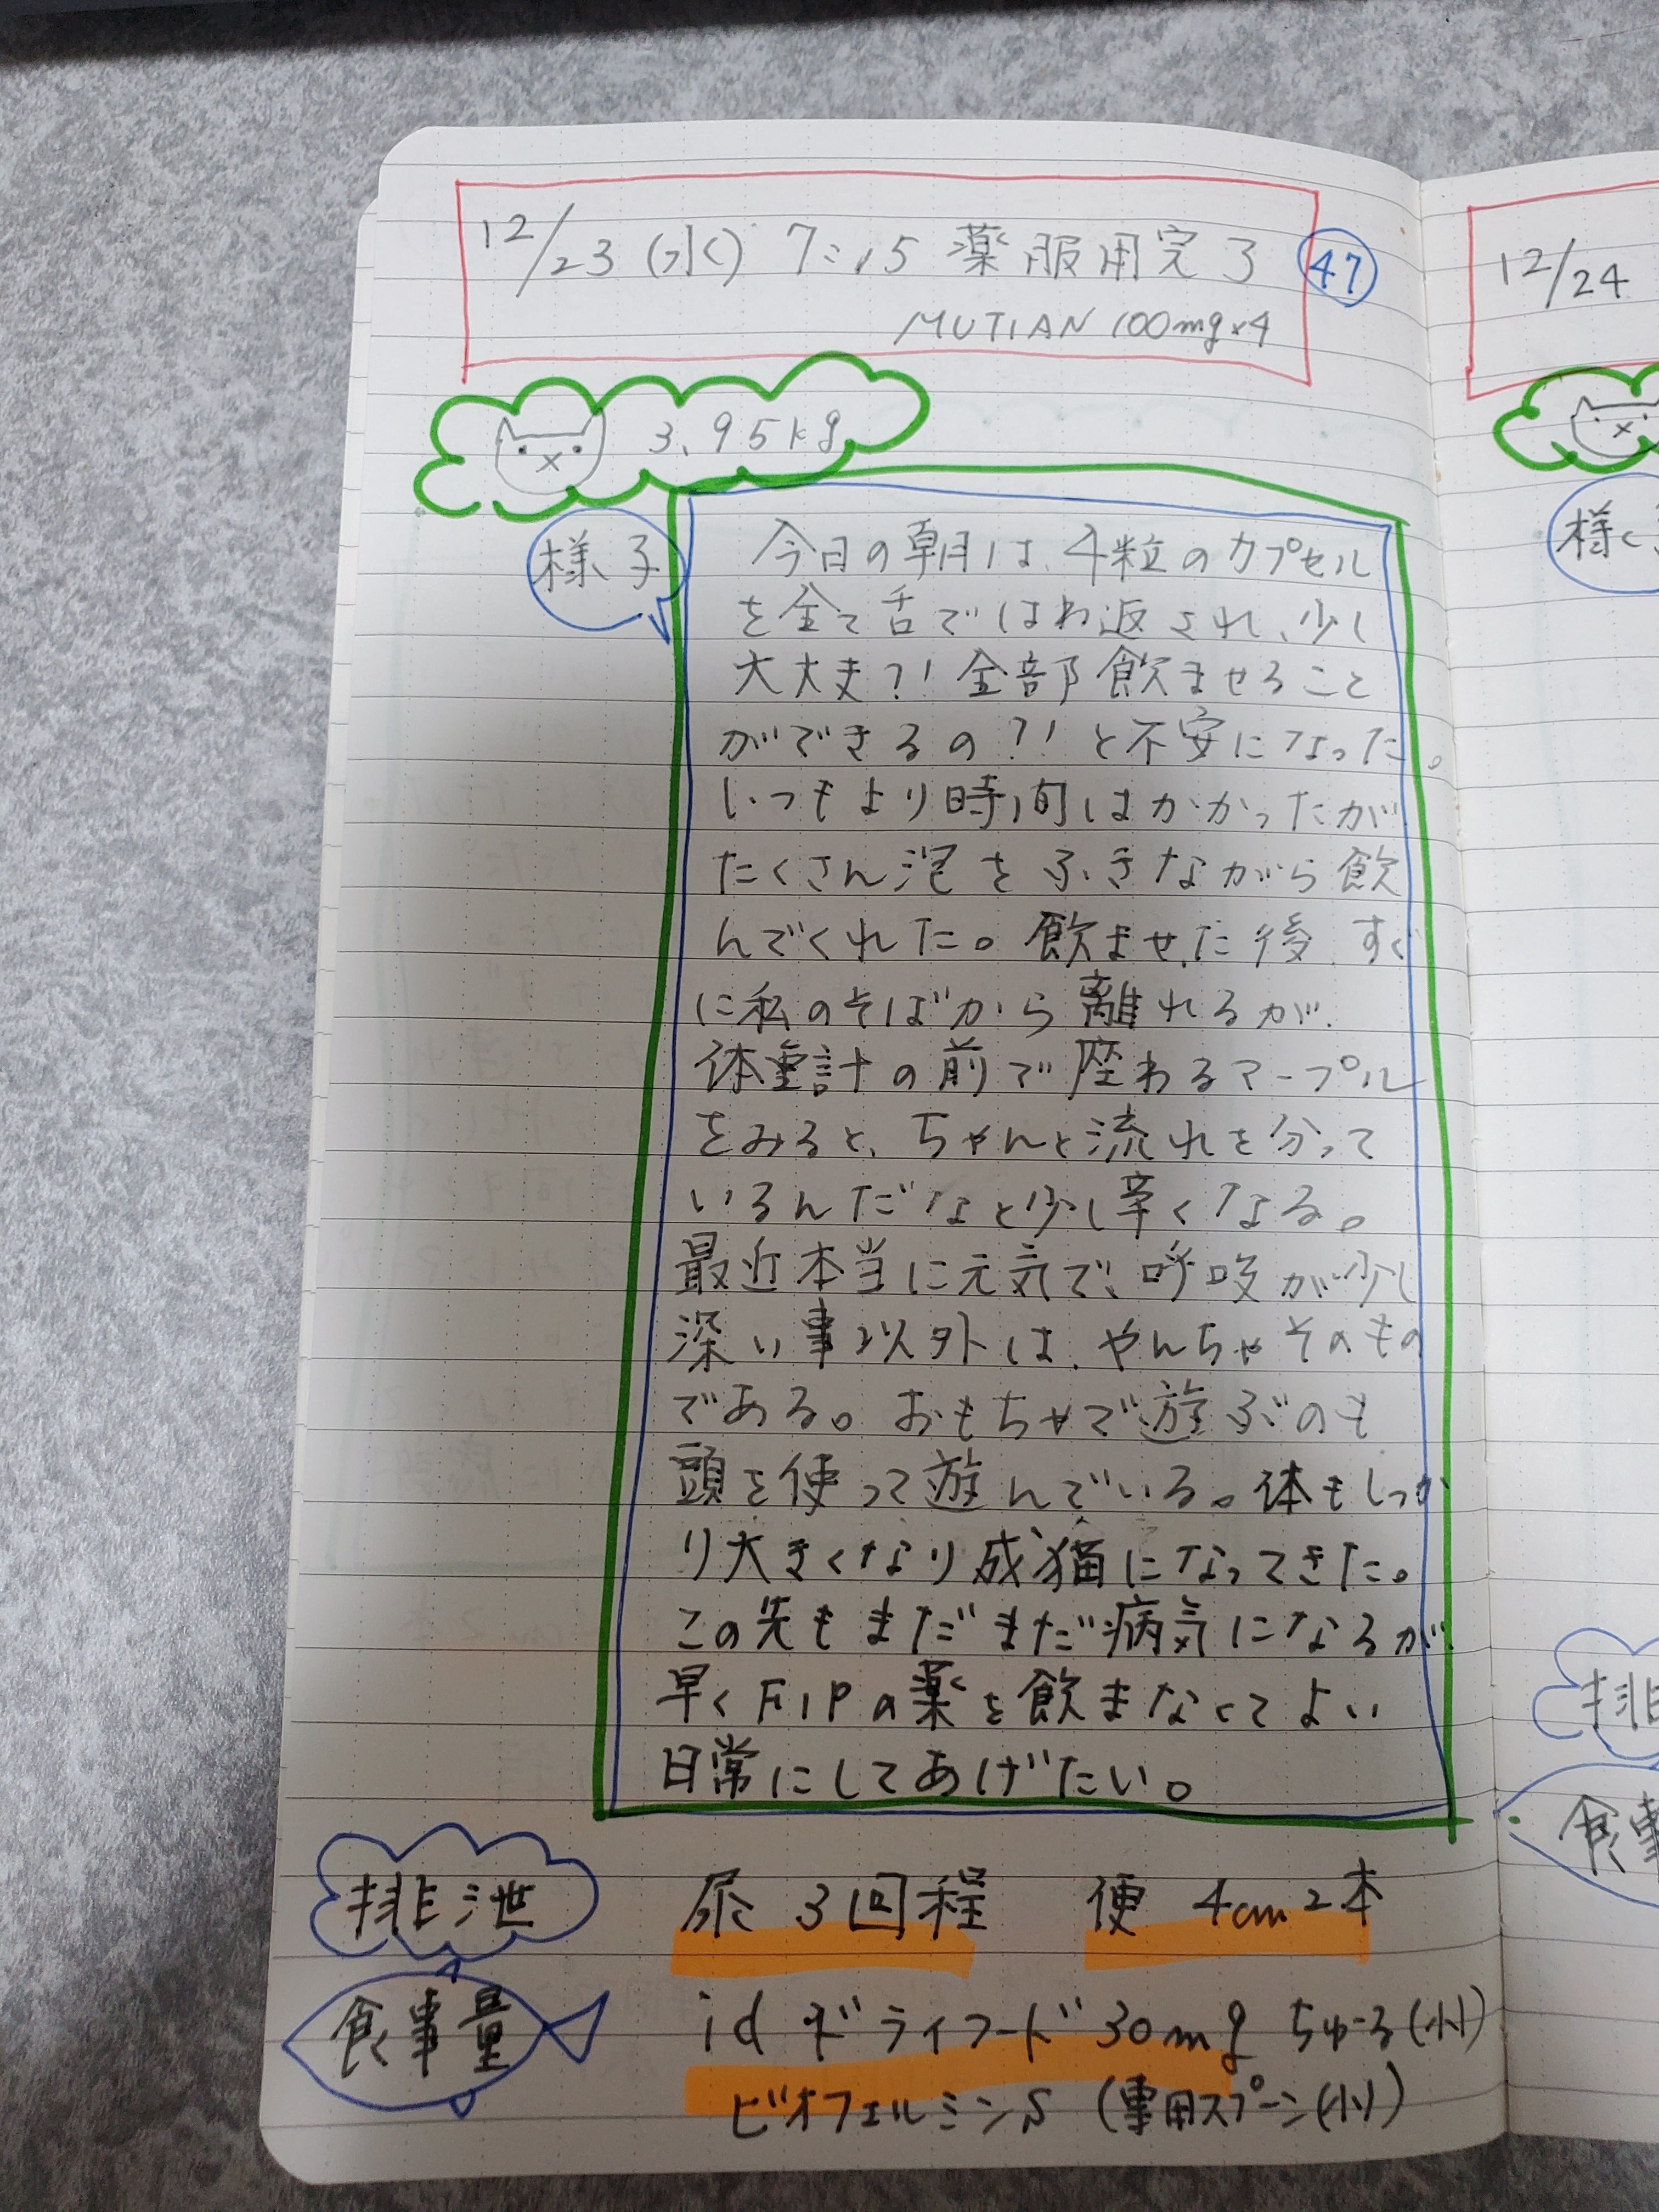 12/23(水) 7:15 薬服用完了
47
MUTIAN 100mg×4
3.95kg
様子
今日の朝は、4粒のカプセル
を全て舌ではね返され、少し
大丈夫?! 全部飲ませること
ができるの?! と不安になった。
いつもより時間はかかったが
たくさん泡をふきながら飲
んでくれた。飲ませた後、すぐ
に私のそばから離れるが、
体重計の前で座わるマープル
をみると、ちゃんと流れを分って
いるんだなと少し辛くなる。
最近本当に元気で、呼吸が少し
深い事以外は、やんちゃそのもの
である。おもちゃで遊ぶのも
頭を使って遊んでいる。体もしっか
り大きくなり成猫になってきた。
この先もまだまだ病気になるが
早くFIPの薬を飲まなくてよい
日常にしてあげたい。
排泄
尿 3回程 便 4cm 2本
食事量
id ドライフード 30mg ちゅーる(小)
ビオフェルミンS (専用スプーン(小))
12/24
様子
排
食事